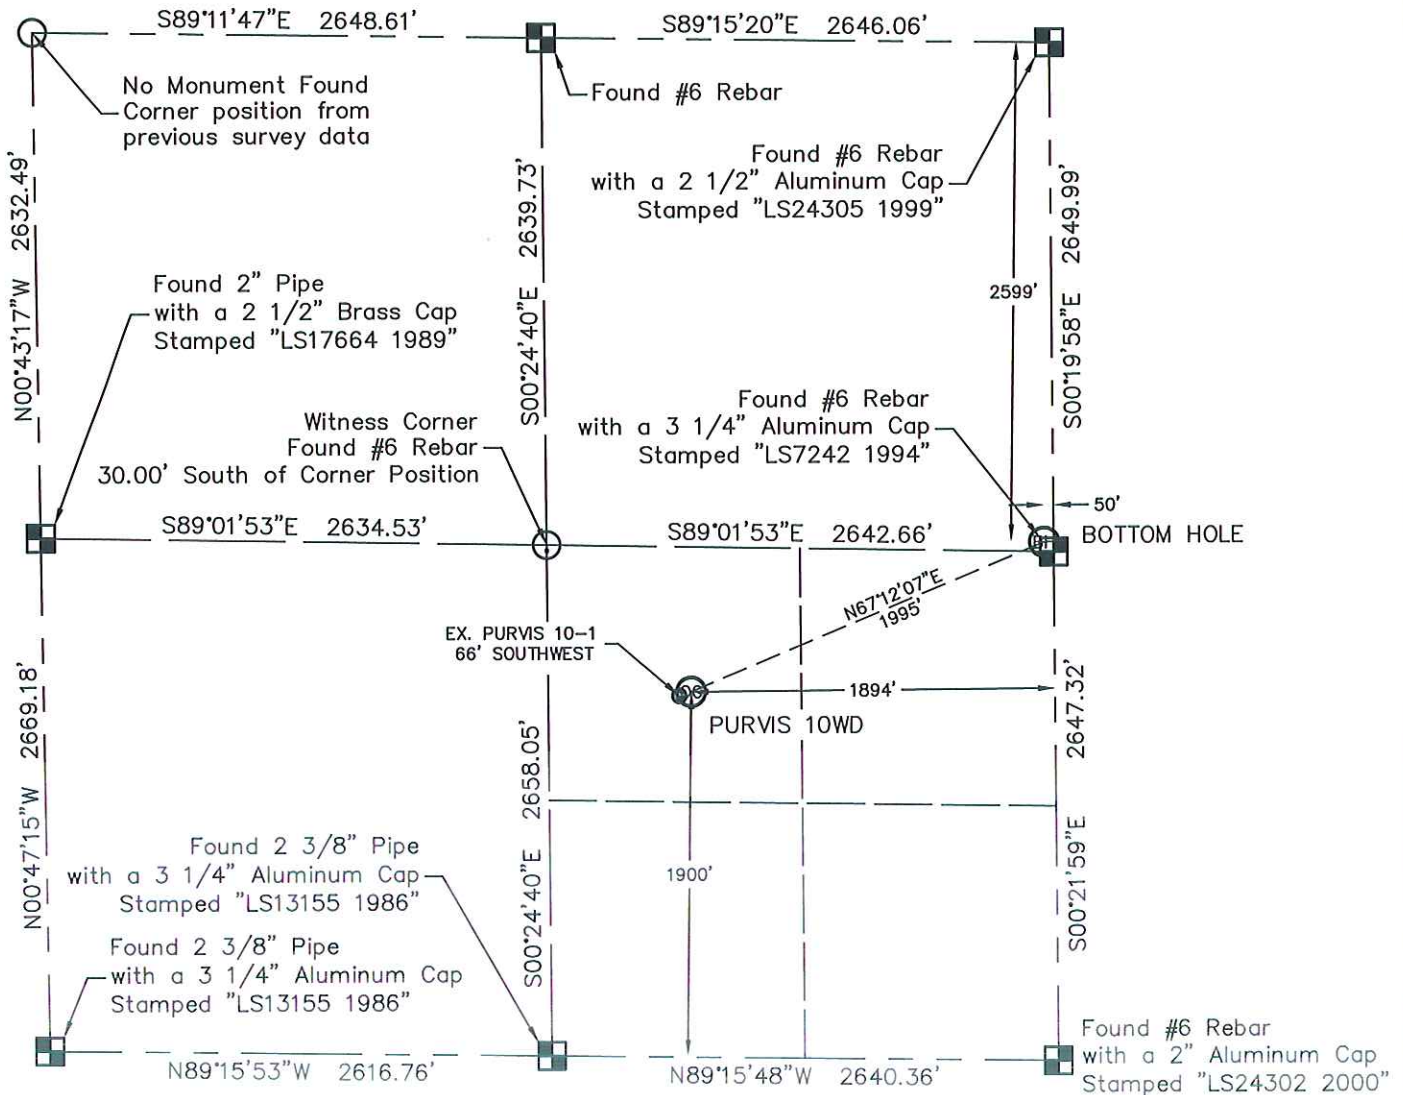 S89°11'47"E 2648.61'
S89°15'20"E 2646.06'
No Monument Found
Corner position from
previous survey data
Found #6 Rebar
Found #6 Rebar
with a 2 1/2" Aluminum Cap
Stamped "LS24305 1999"
N00°43'17"W 2632.49'
S00°24'40"E 2639.73'
S00°19'58"E 2649.99'
2599'
Found 2" Pipe
with a 2 1/2" Brass Cap
Stamped "LS17664 1989"
Witness Corner
Found #6 Rebar
30.00' South of Corner Position
Found #6 Rebar
with a 3 1/4" Aluminum Cap
Stamped "LS7242 1994"
50'
BOTTOM HOLE
S89°01'53"E 2634.53'
S89°01'53"E 2642.66'
N67°12'07"E
1995'
EX. PURVIS 10-1
66' SOUTHWEST
1894'
PURVIS 10WD
N00°47'15"W 2669.18'
S00°24'40"E 2658.05'
S00°21'59"E 2647.32'
1900'
Found 2 3/8" Pipe
with a 3 1/4" Aluminum Cap
Stamped "LS13155 1986"
Found 2 3/8" Pipe
with a 3 1/4" Aluminum Cap
Stamped "LS13155 1986"
N89°15'53"W 2616.76'
N89°15'48"W 2640.36'
Found #6 Rebar
with a 2" Aluminum Cap
Stamped "LS24302 2000"